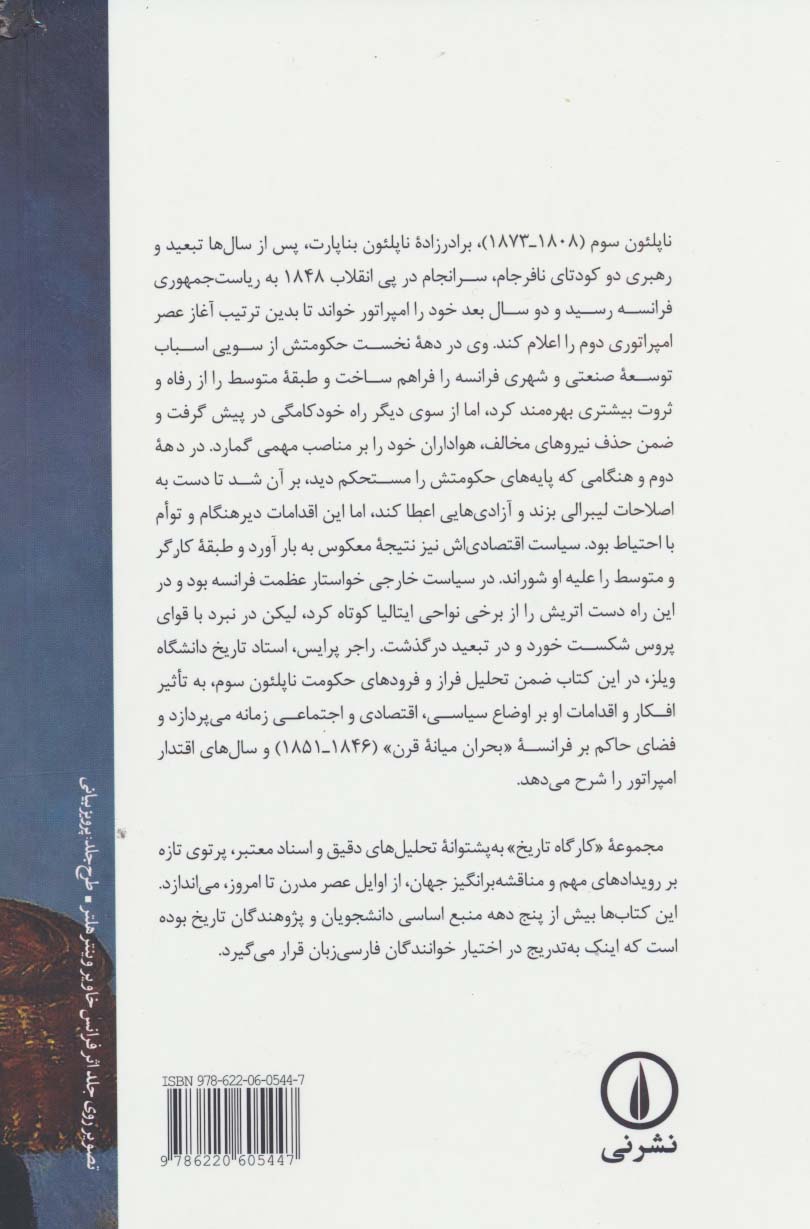 ناپلئون سوم (۱۸۰۸ـ۱۸۷۳)، برادرزادهٔ ناپلئون بناپارت، پس از سال‌ها تبعید و
رهبری دو کودتای نافرجام، سرانجام در پی انقلاب ۱۸۴۸ به ریاست‌جمهوری
فرانسه رسید و دو سال بعد خود را امپراتور خواند تا بدین ترتیب آغاز عصر
امپراتوری دوم را اعلام کند. وی در دههٔ نخست حکومتش از سویی اسباب
توسعهٔ صنعتی و شهری فرانسه را فراهم ساخت و طبقهٔ متوسط را از رفاه و
ثروت بیشتری بهره‌مند کرد، اما از سوی دیگر راه خودکامگی در پیش گرفت و
ضمن حذف نیروهای مخالف، هواداران خود را بر مناصب مهمی گمارد. در دههٔ
دوم و هنگامی که پایه‌های حکومتش را مستحکم دید، بر آن شد تا دست به
اصلاحات لیبرالی بزند و آزادی‌هایی اعطا کند، اما این اقدامات دیرهنگام و توأم
با احتیاط بود. سیاست اقتصادی‌اش نیز نتیجهٔ معکوس به بار آورد و طبقهٔ کارگر
و متوسط را علیه او شوراند. در سیاست خارجی خواستار عظمت فرانسه بود و در
این راه دست اتریش را از برخی نواحی ایتالیا کوتاه کرد، لیکن در نبرد با قوای
پروس شکست خورد و در تبعید درگذشت. راجر پرایس، استاد تاریخ دانشگاه
ویلز، در این کتاب ضمن تحلیل فراز و فرودهای حکومت ناپلئون سوم، به تأثیر
افکار و اقدامات او بر اوضاع سیاسی، اقتصادی و اجتماعی زمانه می‌پردازد و
فضای حاکم بر فرانسهٔ «بحران میانهٔ قرن» (۱۸۴۶ـ۱۸۵۱) و سال‌های اقتدار
امپراتور را شرح می‌دهد.
مجموعهٔ «کارگاه تاریخ» به‌پشتوانهٔ تحلیل‌های دقیق و اسناد معتبر، پرتوی تازه
بر رویدادهای مهم و مناقشه‌برانگیز جهان، از اوایل عصر مدرن تا امروز، می‌اندازد.
این کتاب‌ها بیش از پنج دهه منبع اساسی دانشجویان و پژوهندگان تاریخ بوده
است که اینک به‌تدریج در اختیار خوانندگان فارسی‌زبان قرار می‌گیرد.
تصویر روی جلد اثر فرانس خاویر وینتر هلتر ■ طرح جلد: پرویز بیانی
ISBN 978-622-06-0544-7
9 786220 605447
نشر نی